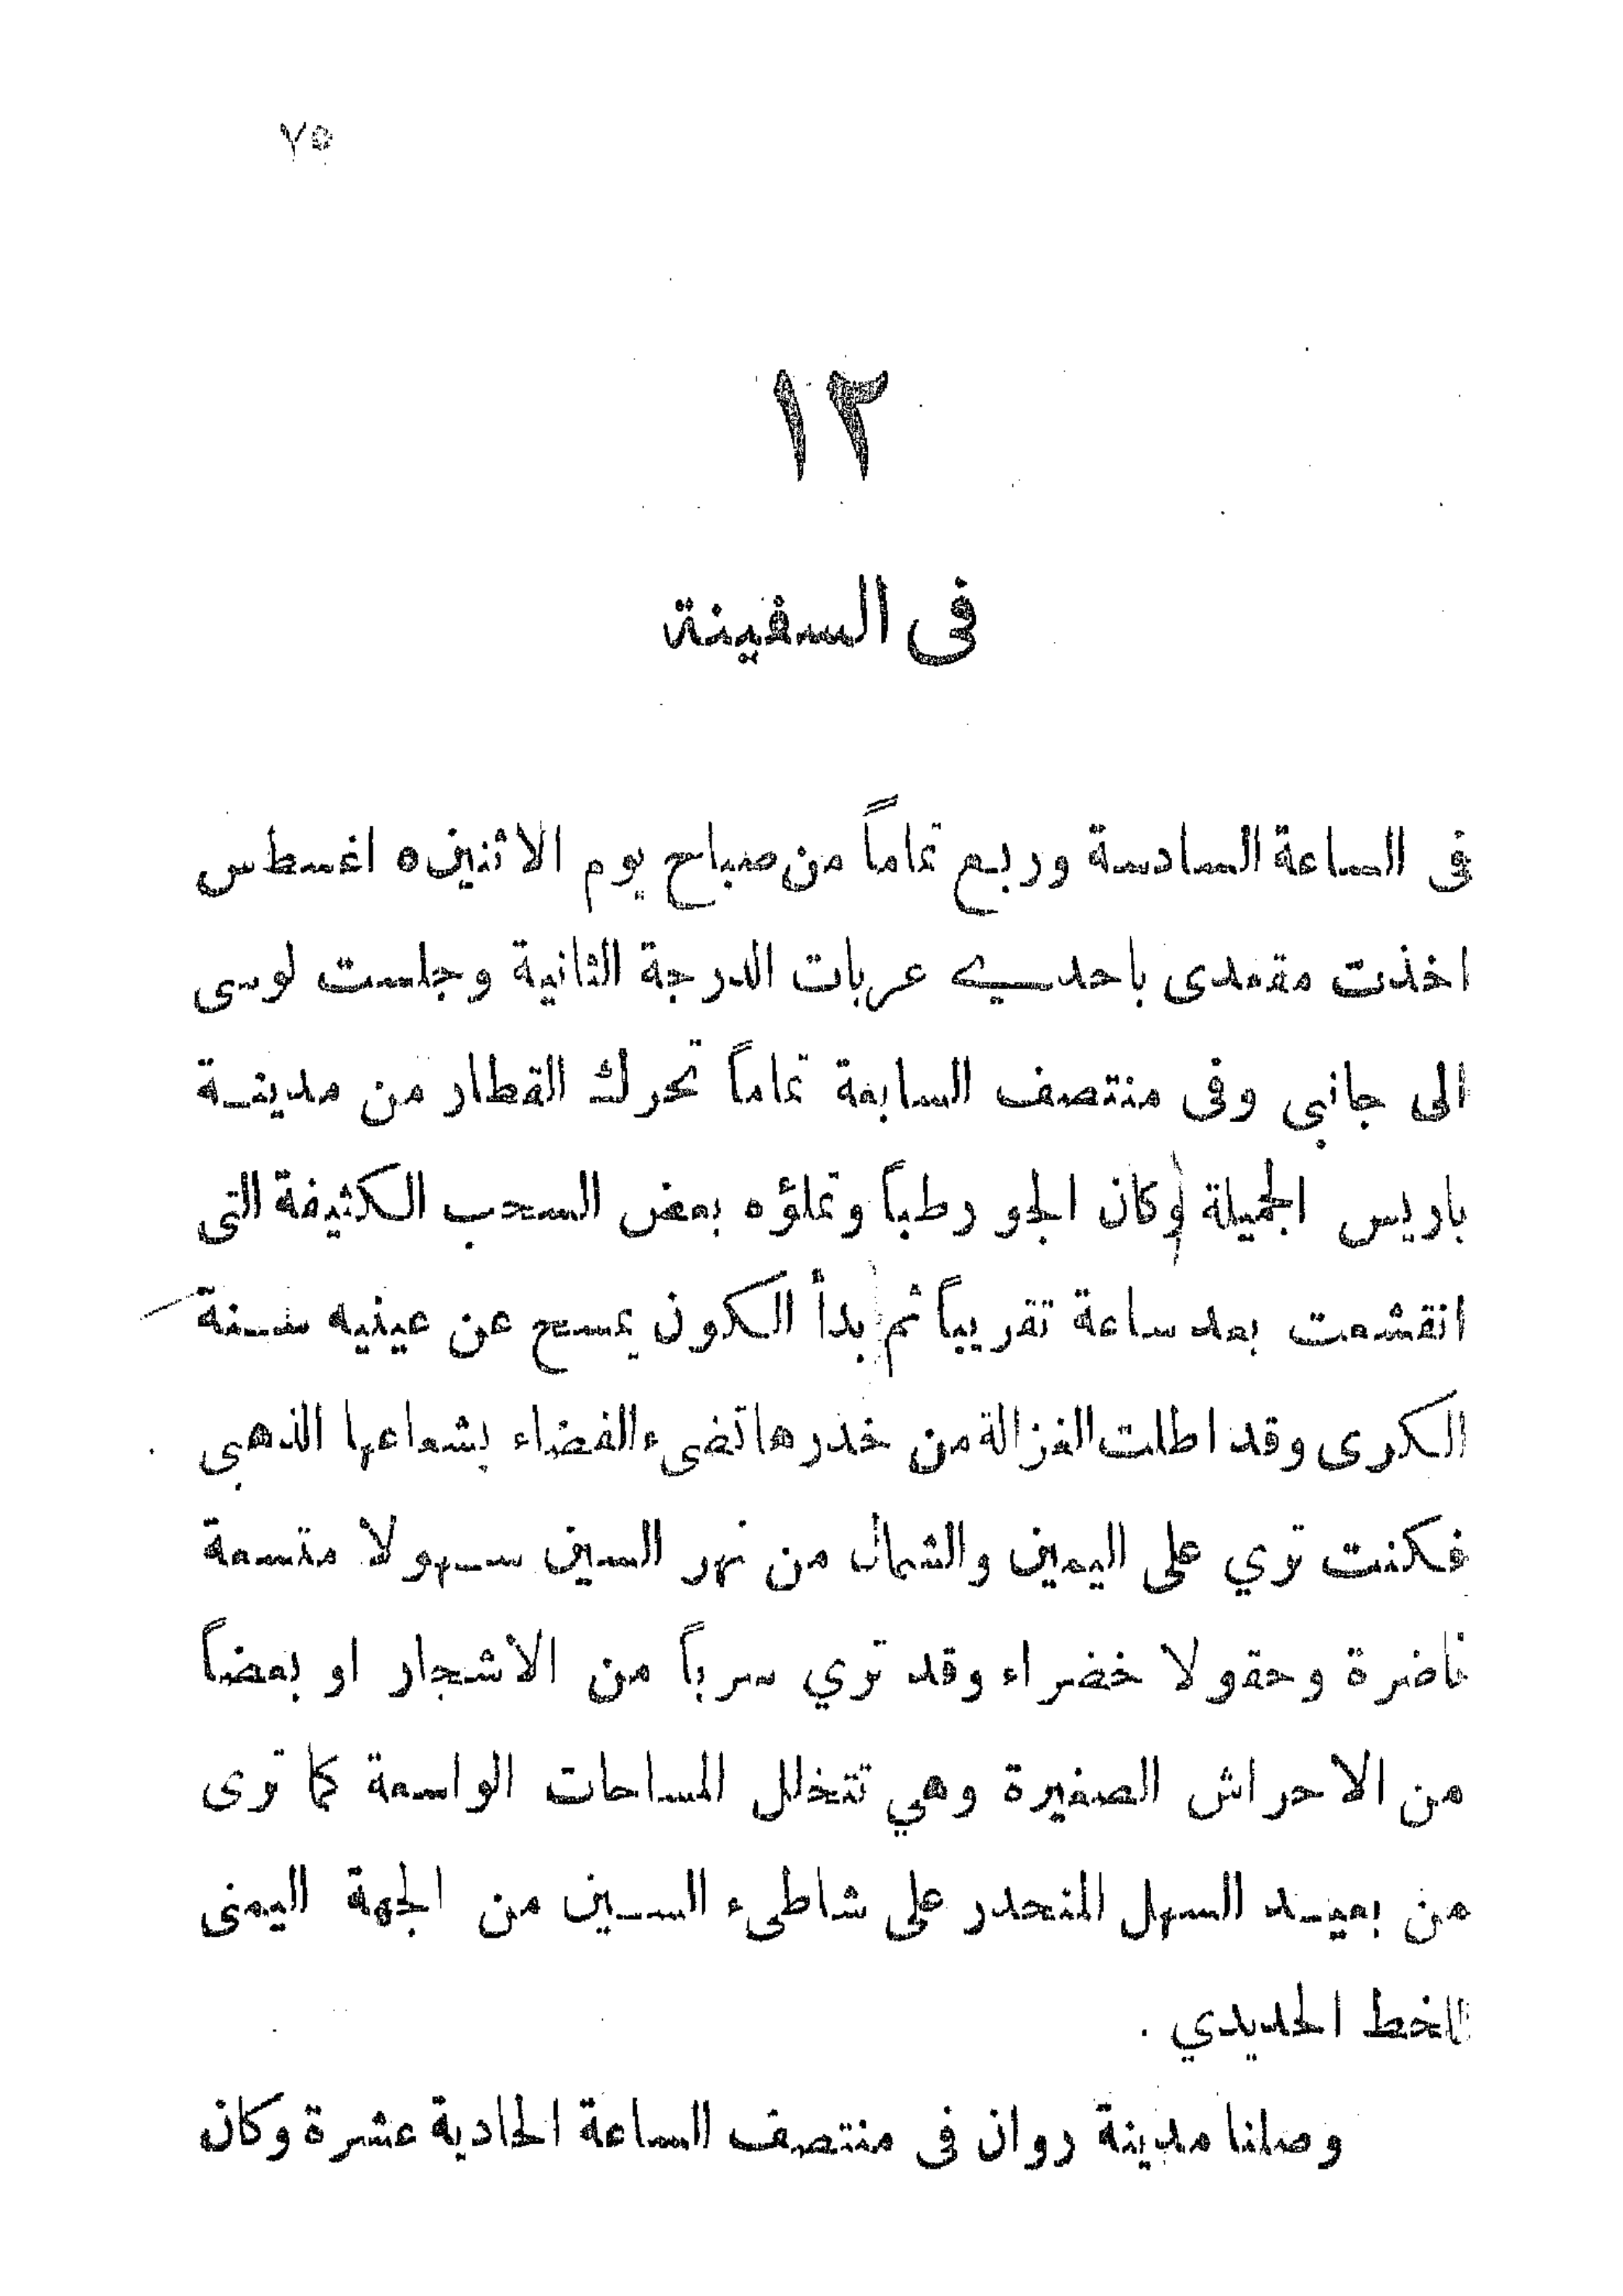 ٧٥
١٣
فى السفينة
فى الساعة السادسة وربع تماماً من صباح يوم الاثنين ٥ اغسطس
اخذت مقعدى باحدي عربات الدرجة الثانية وجلست لوسى
الى جانبي وفى منتصف السابعة تماماً تحرك القطار من مدينة
باريس الجميلة وكان الجو رطباً وتملؤه بعض السحب الكثيفة التى
انقشعت بعد ساعة تقريباً ثم بدأ الكون يمسح عن عينيه سنة
الكرى وقد اطلت الغزالة من خدرها تضىء الفضاء بشعاعها الذهبى
فكنت تري على اليمين والشمال من نهر السين سهولا متسعة
ناضرة وحقولا خضراء وقد تري سرباً من الاشجار او بعضاً
من الاحراش الصغيرة وهي تتخلل المساحات الواسعة كما ترى
من بعيد السهل المنحدر على شاطىء السين من الجهة اليمنى
للخط الحديدي .
وصلنا مدينة روان فى منتصف الساعة الحادية عشرة وكان